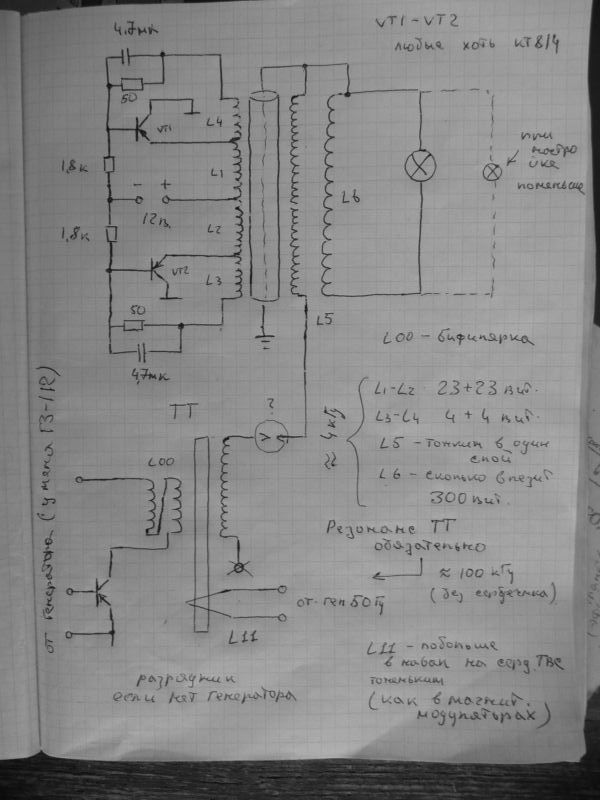 VT1-VT2
любые хоть КТ814
4.7мк
50
VT1
L4
1,8к
L1
- +
12в.
1,8к
L2
VT2
L3
50
4,7мк
L6
при
настро
йке
поменьше
L5
L00 - бифилярка
L1-L2 23+23 вит.
L3-L4 4+4 вит.
L5 - тонким в один
слой
L6 - сколько влезит
300 вит.
≈ 4кГц
Резонанс ТТ
обязательно
≈ 100 кГц
(без сердечника)
ТТ
L00
?
V
от генератора (у меня ГЗ-112)
от ген 50Гц
L11
разрядник
если нет генератора
L11 - побольше
в навал на серд. ТВС
тоненьким
(как в магнит.
модуляторах)